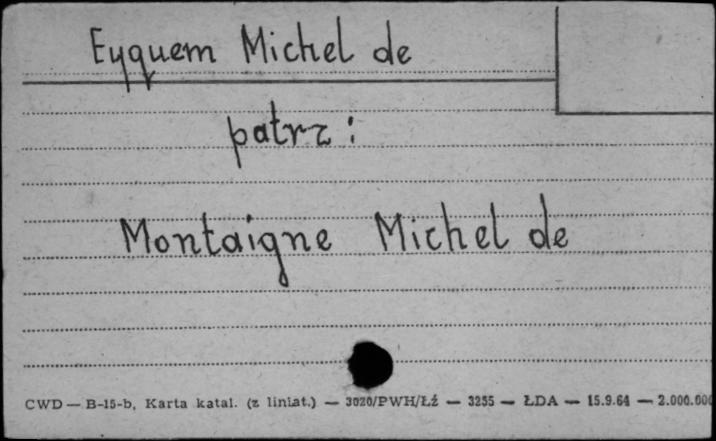 Eyquem Michel de
patrz:
Montaigne Michel de
CWD — B-15-b, Karta katal. (z liniat.) — 3020/PWH/Łź — 3255 — ŁDA — 15.9.64 — 2.000.000